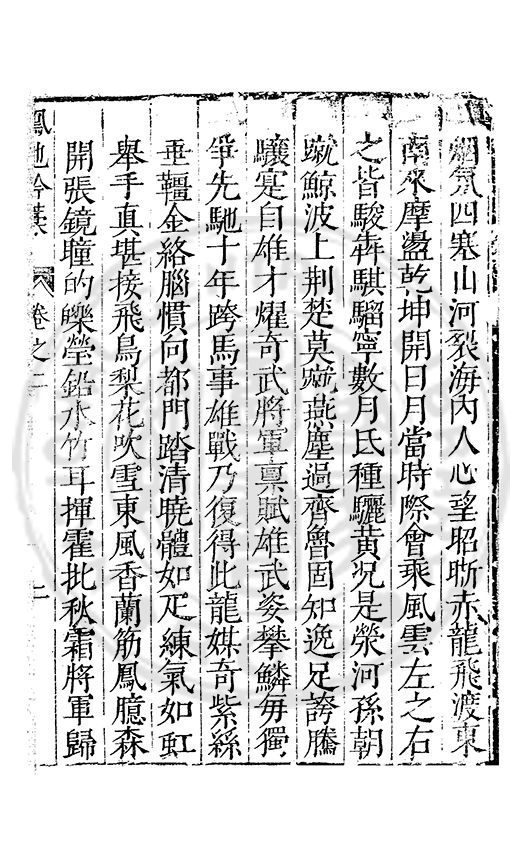 烟氛四塞山河裂海內人心望昭晣赤龍飛渡東
南來摩盪乾坤開日月當時際會乘風雲左之右
之皆駿犇騏騮寧數月氏種驪黃况是滎河孫朝
蹴鯨波上荆楚莫蹴燕塵過齊魯固知逸足誇騰
驤寔自雄才燿奇武將軍禀賦雄武姿攀鱗每獨
爭先馳十年跨馬事雄戰乃復得此龍媒奇紫絲
垂韁金絡腦慣向都門踏清曉體如疋練氣如虹
舉手真堪接飛鳥梨花吹雪東風香蘭筋鳳臆森
開張鏡瞳的皪瑩鉛水竹耳揮霍批秋霜將軍歸
鳳池吟藁 卷之二